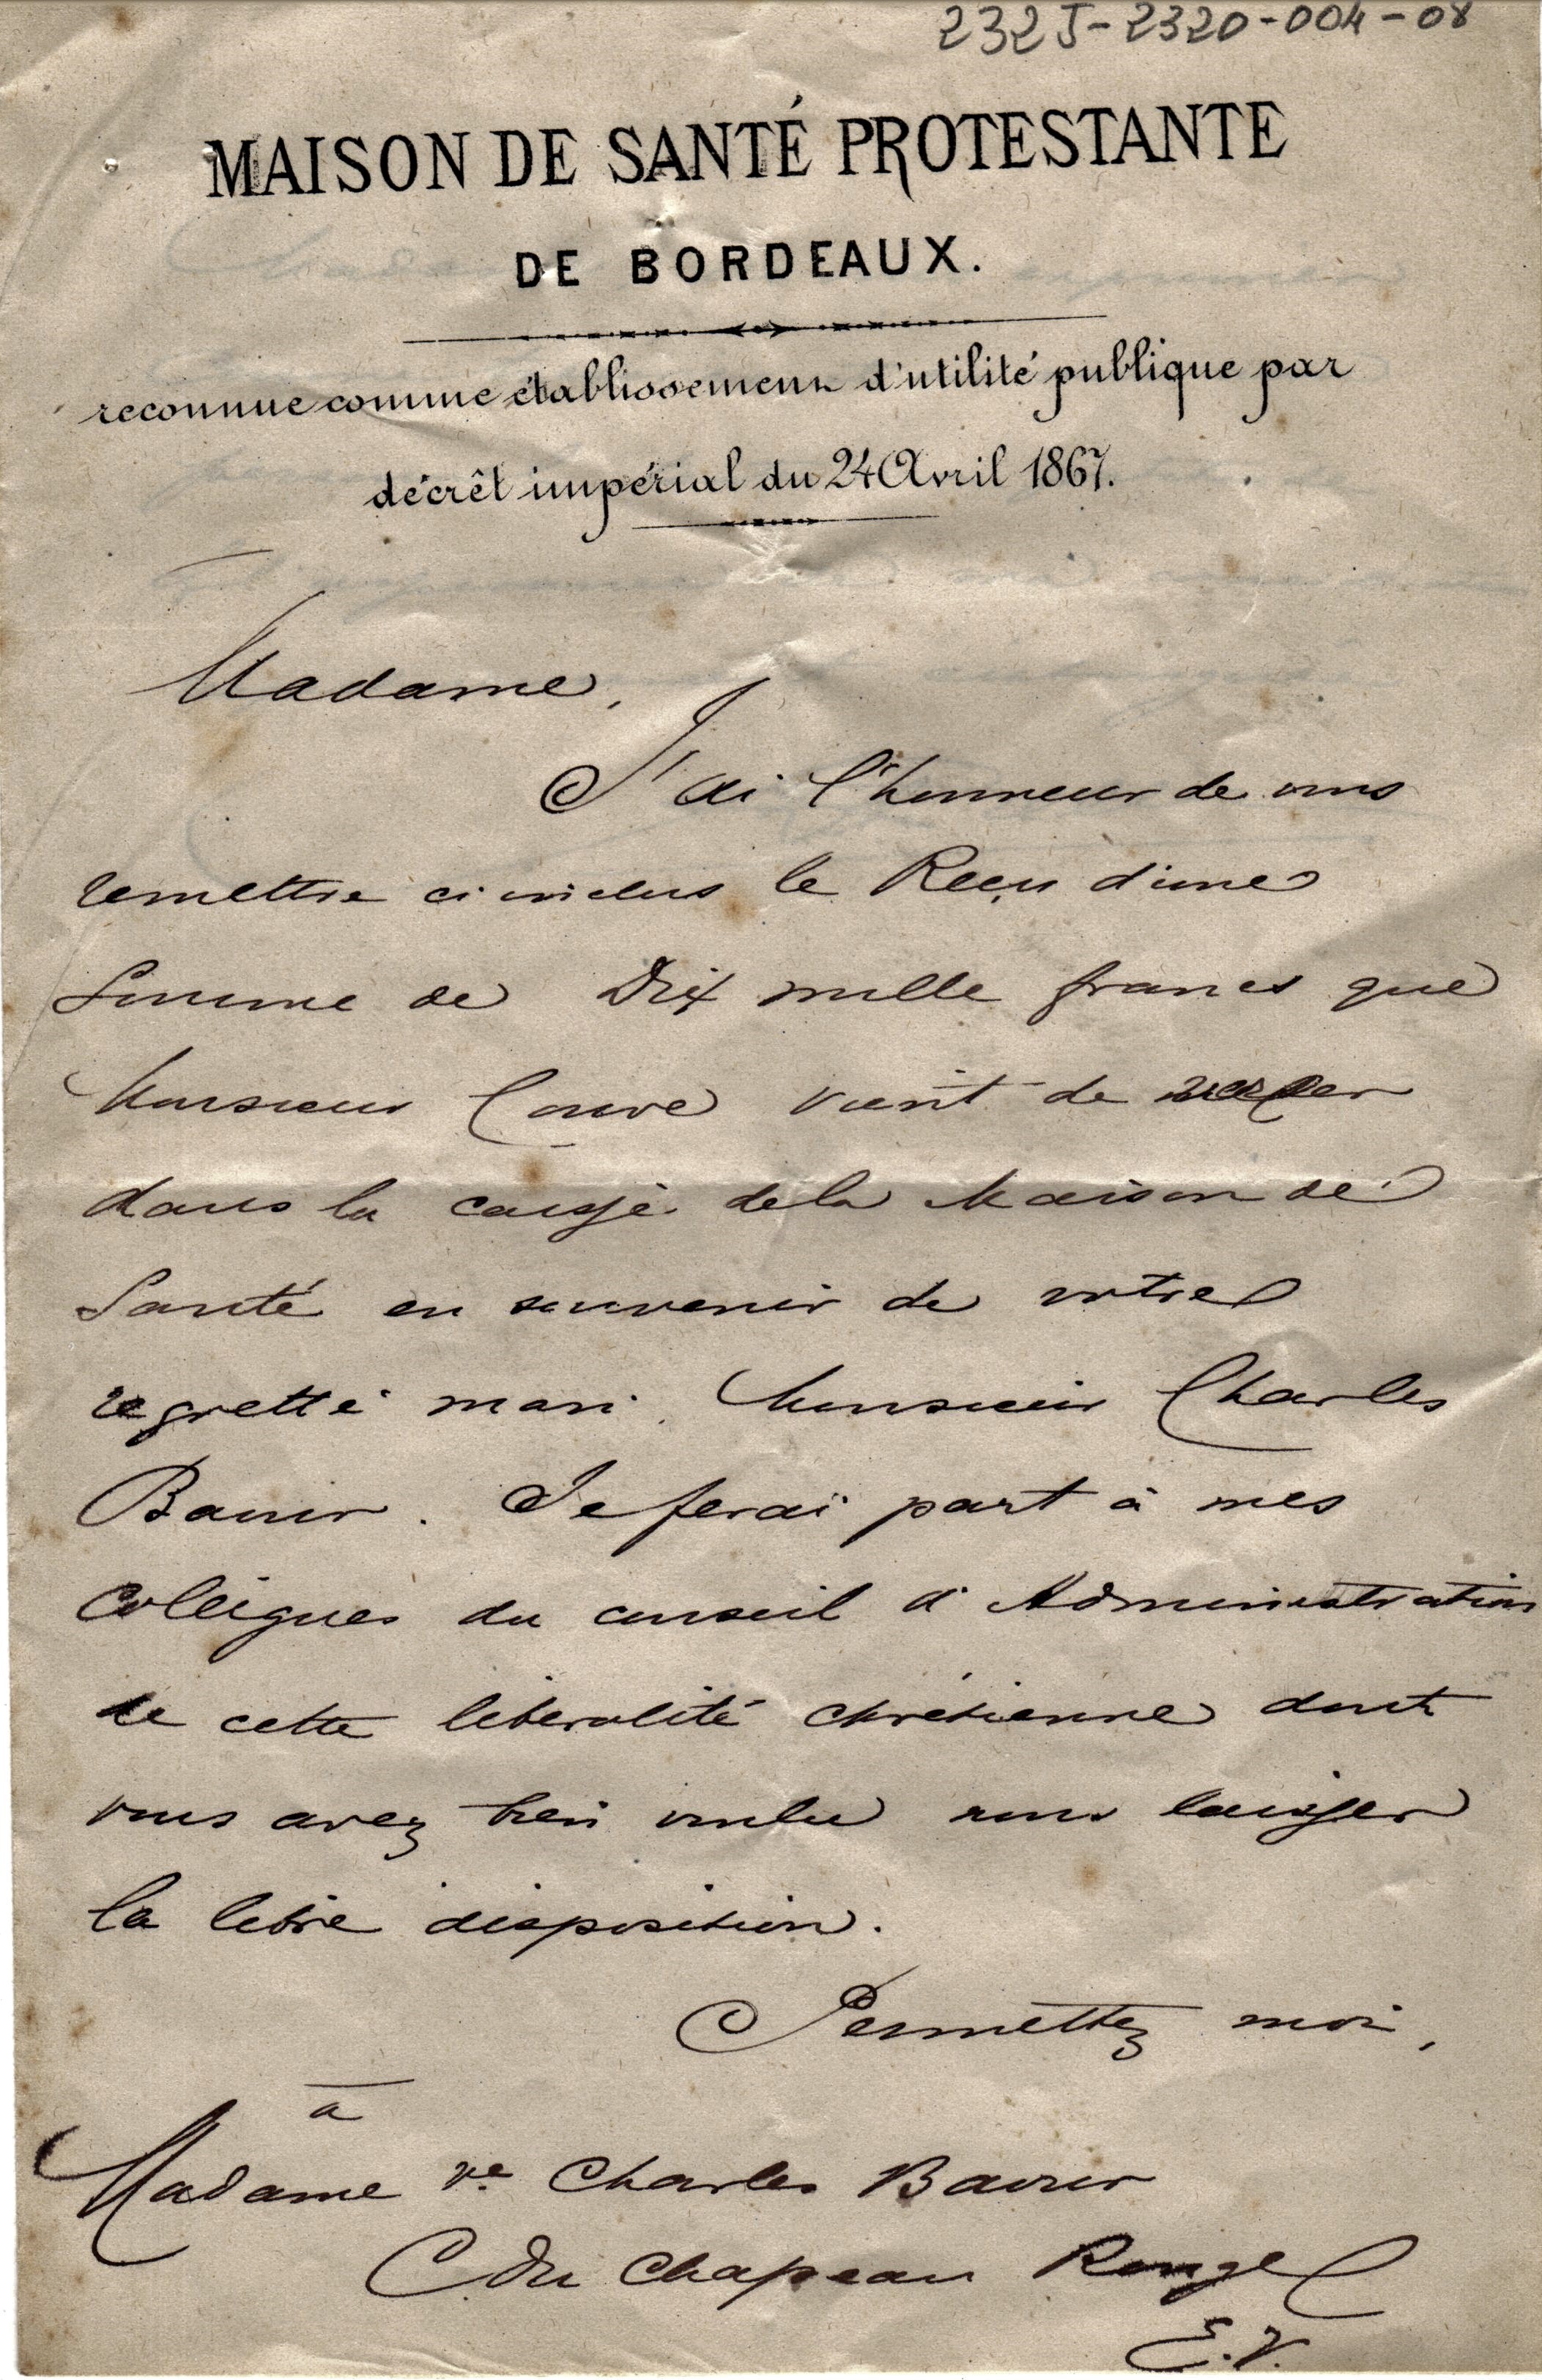 232J-2320-004-08
MAISON DE SANTÉ PROTESTANTE
DE BORDEAUX.
reconnue comme établissement d'utilité publique par
décrêt impérial du 24 Avril 1867.
Madame,
J'ai l'honneur de vous
remettre ci inclus le Reçu d'une
Somme de Dix mille francs que
Monsieur Couve vient de
dans la caisse de la Maison de
Santé en souvenir de votre
regretté mari. Monsieur Charles
Baour. Je ferai part à mes
Collègues du conseil d'Administration
de cette libéralité chrétienne dont
vous avez bien voulu nous laisser
la libre disposition.
Permettez moi,
à
Madame Ve Charles Baour
C. du Chapeau Rouge
E.V.